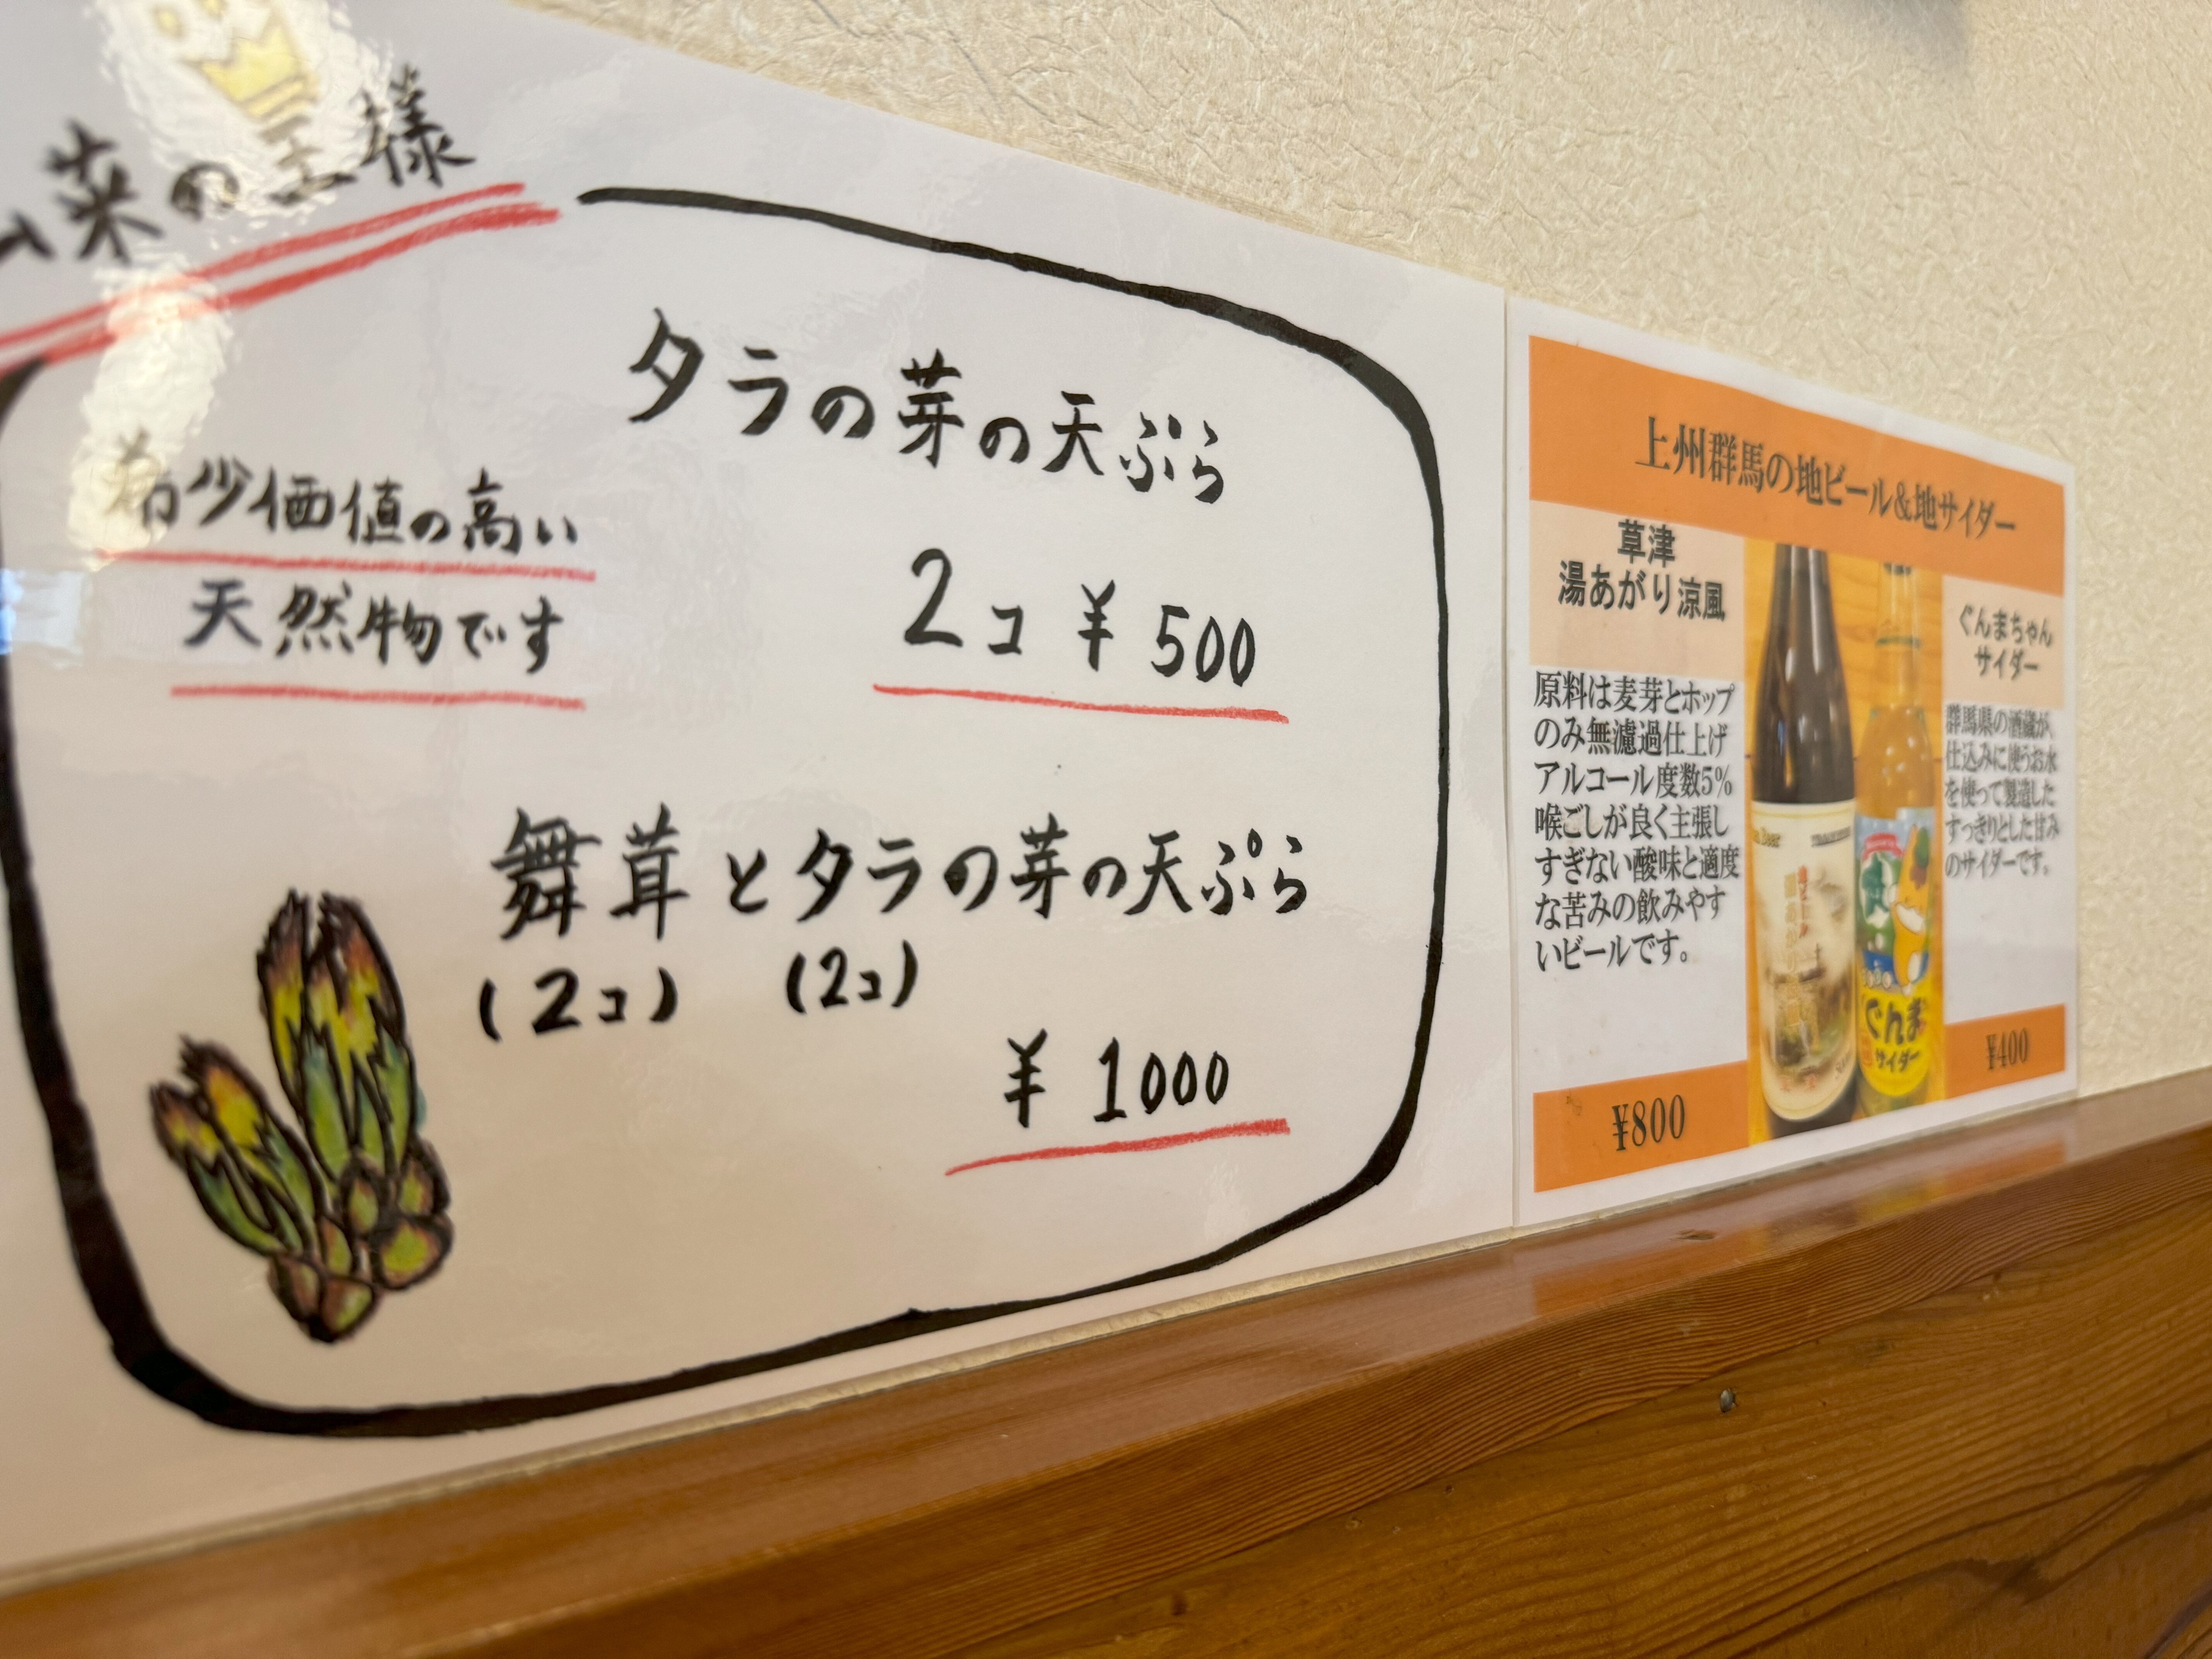 山菜の王様
タラの芽の天ぷら
2コ ¥500
希少価値の高い
天然物です
舞茸とタラの芽の天ぷら
(2コ) (2コ)
¥1000
上州群馬の地ビール&地サイダー
草津
湯あがり涼風
原料は麦芽とホップ
のみ無濾過仕上げ
アルコール度数5%
喉ごしが良く主張し
すぎない酸味と適度
な苦みの飲みやす
いビールです。
¥800
ぐんまちゃん
サイダー
群馬県の酒蔵が、
仕込みに使うお水
を使って製造した
すっきりとした甘み
のサイダーです。
¥400
ぐんま
サイダー